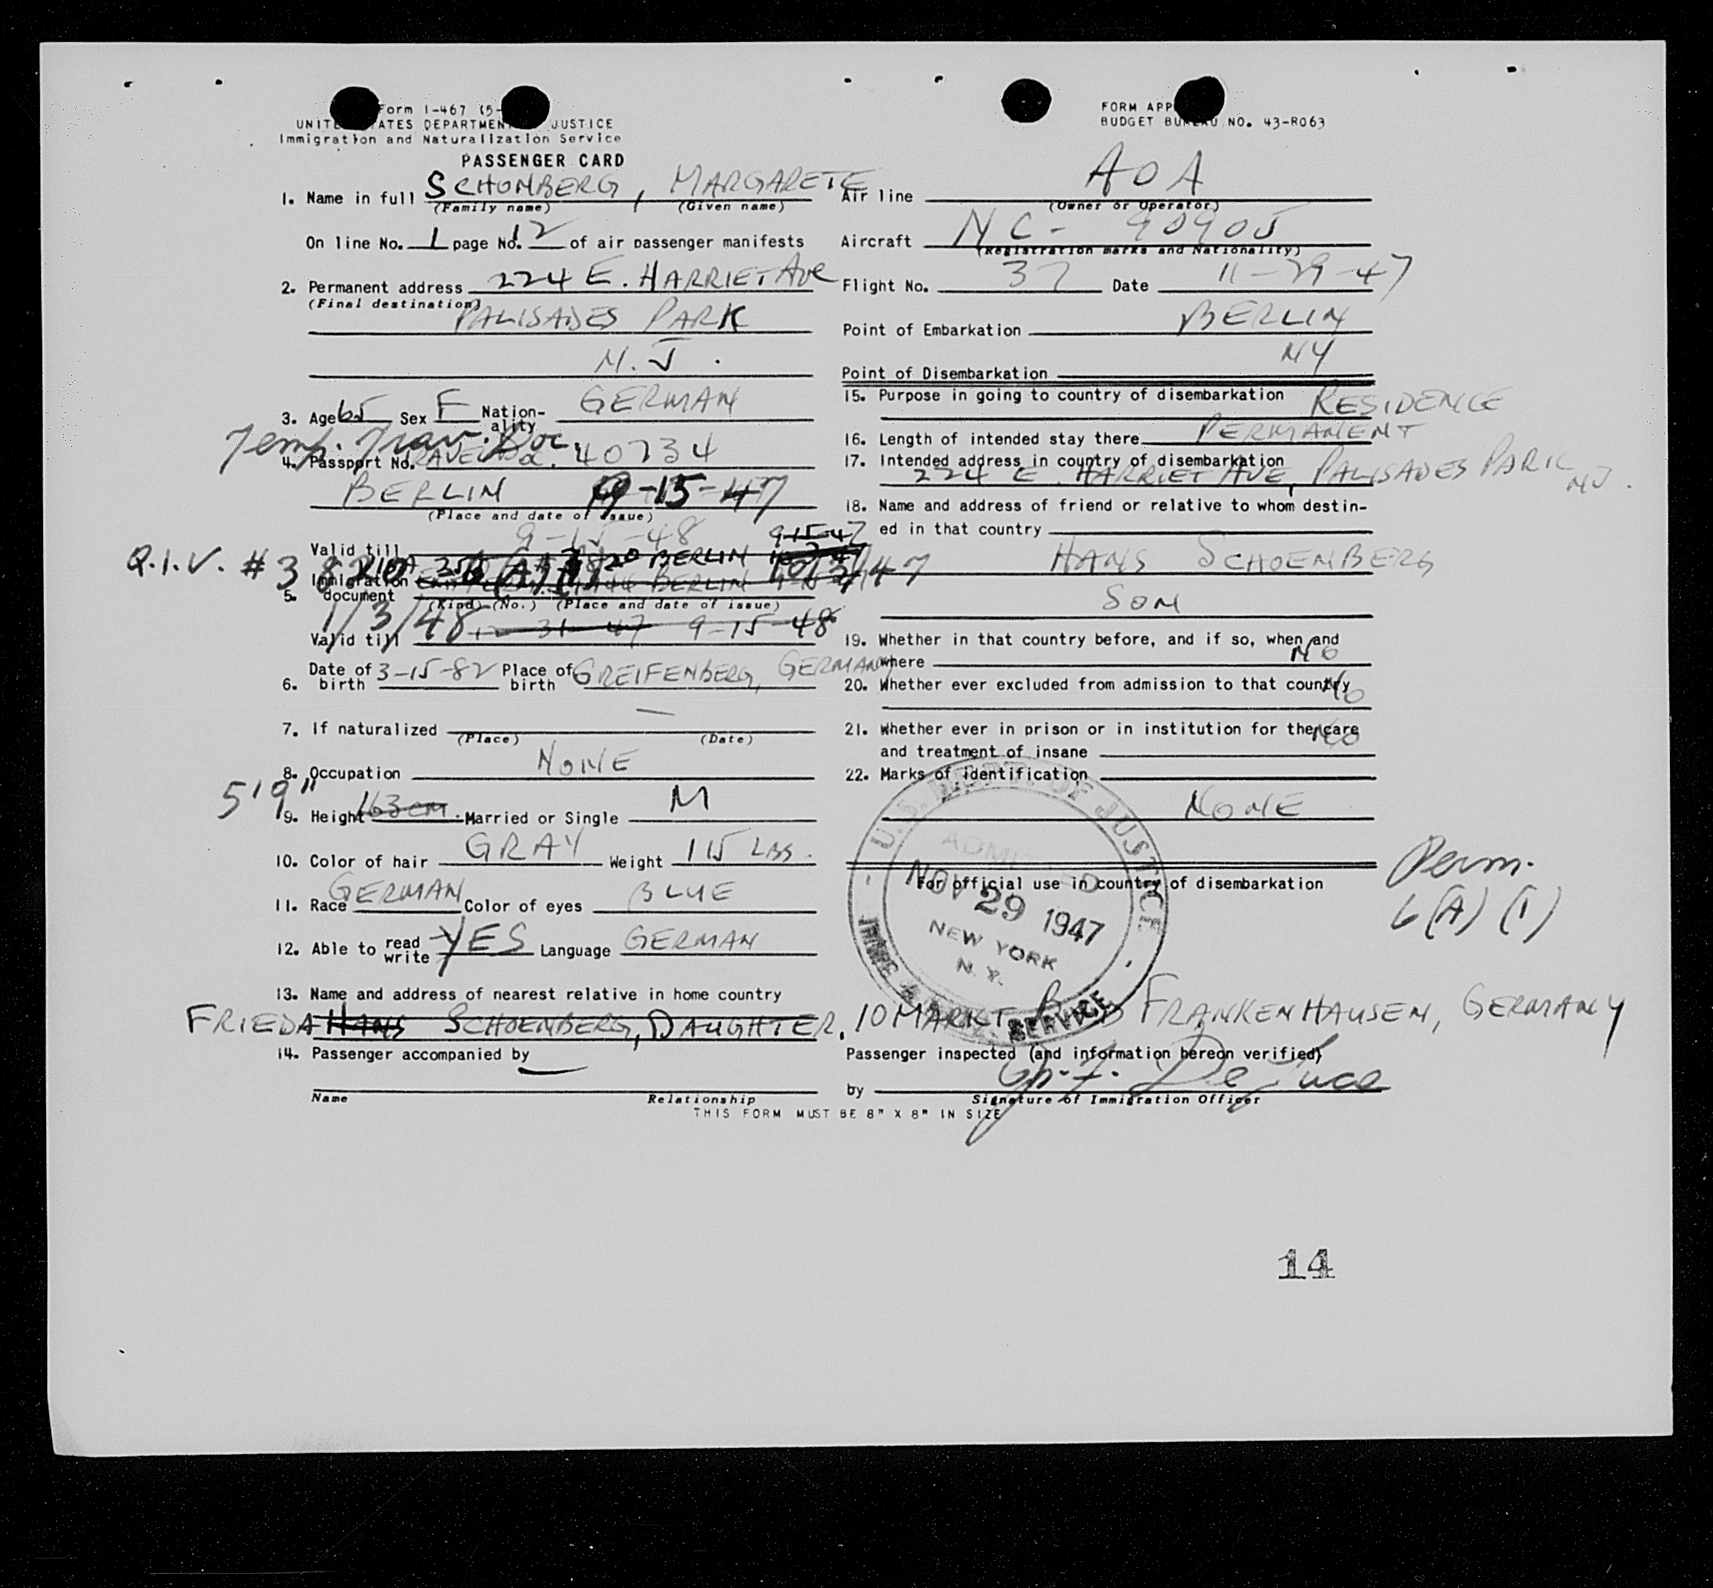 Form I-467 (5-
UNIT ATES DEPARTMEN JUSTICE
Immigration and Naturalization Service
PASSENGER CARD
1. Name in full SCHONBERG, MARGARETE
(Family name) (Given name)
On line No. 1 page No. 12 of air passenger manifests
2. Permanent address 224 E. HARRIET AVE
(Final destination)
PALISADES PARK
N.J.
3. Age 65 Sex F Nation-ality GERMAN
Temp. Trav. Doc.
4. Passport No. TRAVEL Doc. 40734
BERLIN 9-15-47
(Place and date of issue)
Valid till 9-15-48
9-15-47
Q.I.V. # 38 BERLIN 10/3/47
5. Immigration document BERLIN
(Kind) (No.) (Place and date of issue)
1/3/48
Valid till 12-31-47 9-15-48
6. Date of birth 3-15-82 Place of birth GREIFENBERG, GERMANY
7. If naturalized —
(Place) (Date)
8. Occupation NONE
5'9"
9. Height 163 cm. Married or Single M
10. Color of hair GRAY Weight 115 LBS.
11. Race GERMAN Color of eyes BLUE
12. Able to read write YES Language GERMAN
13. Name and address of nearest relative in home country
FRIEDA HANS SCHOENBERG, DAUGHTER, 10 MARKT BAD FRANKENHAUSEN, GERMANY
14. Passenger accompanied by —
Name Relationship
THIS FORM MUST BE 8" X 8" IN SIZE
FORM APP
BUDGET BUREAU NO. 43-R063
Air line AOA
(Owner or Operator)
Aircraft NC-90905
(Registration marks and Nationality)
Flight No. 37 Date 11-29-47
Point of Embarkation BERLIN
Point of Disembarkation NY
15. Purpose in going to country of disembarkation RESIDENCE
16. Length of intended stay there PERMANENT
17. Intended address in country of disembarkation
224 E. HARRIET AVE, PALISADES PARK NJ.
18. Name and address of friend or relative to whom destin-
ed in that country
HANS SCHOENBERG
SON
19. Whether in that country before, and if so, when and
where NO
20. Whether ever excluded from admission to that country NO
21. Whether ever in prison or in institution for the care
and treatment of insane NO
22. Marks of identification
NONE
For official use in country of disembarkation
Perm.
6(A)(1)
U.S. DEPT. OF JUSTICE
ADMITTED
NOV 29 1947
NEW YORK
N.Y.
IMMIG. & SERVICE
Passenger inspected (and information hereon verified)
by
Signature of Immigration Officer
14